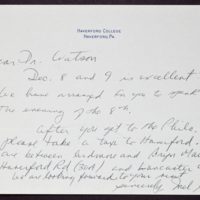 HAVERFORD COLLEGE
HAVERFORD, PA.
Dear Dr. Watson
Dec. 8 and 9 is excellent
We have arranged for you to speak
the evening of the 8th.
After you get to the Phila.
please take a taxi to Haverford.
are between Ardmore and Bryn
Haverford Rd and Lancaster
We are looking forward to your visit
sincerely